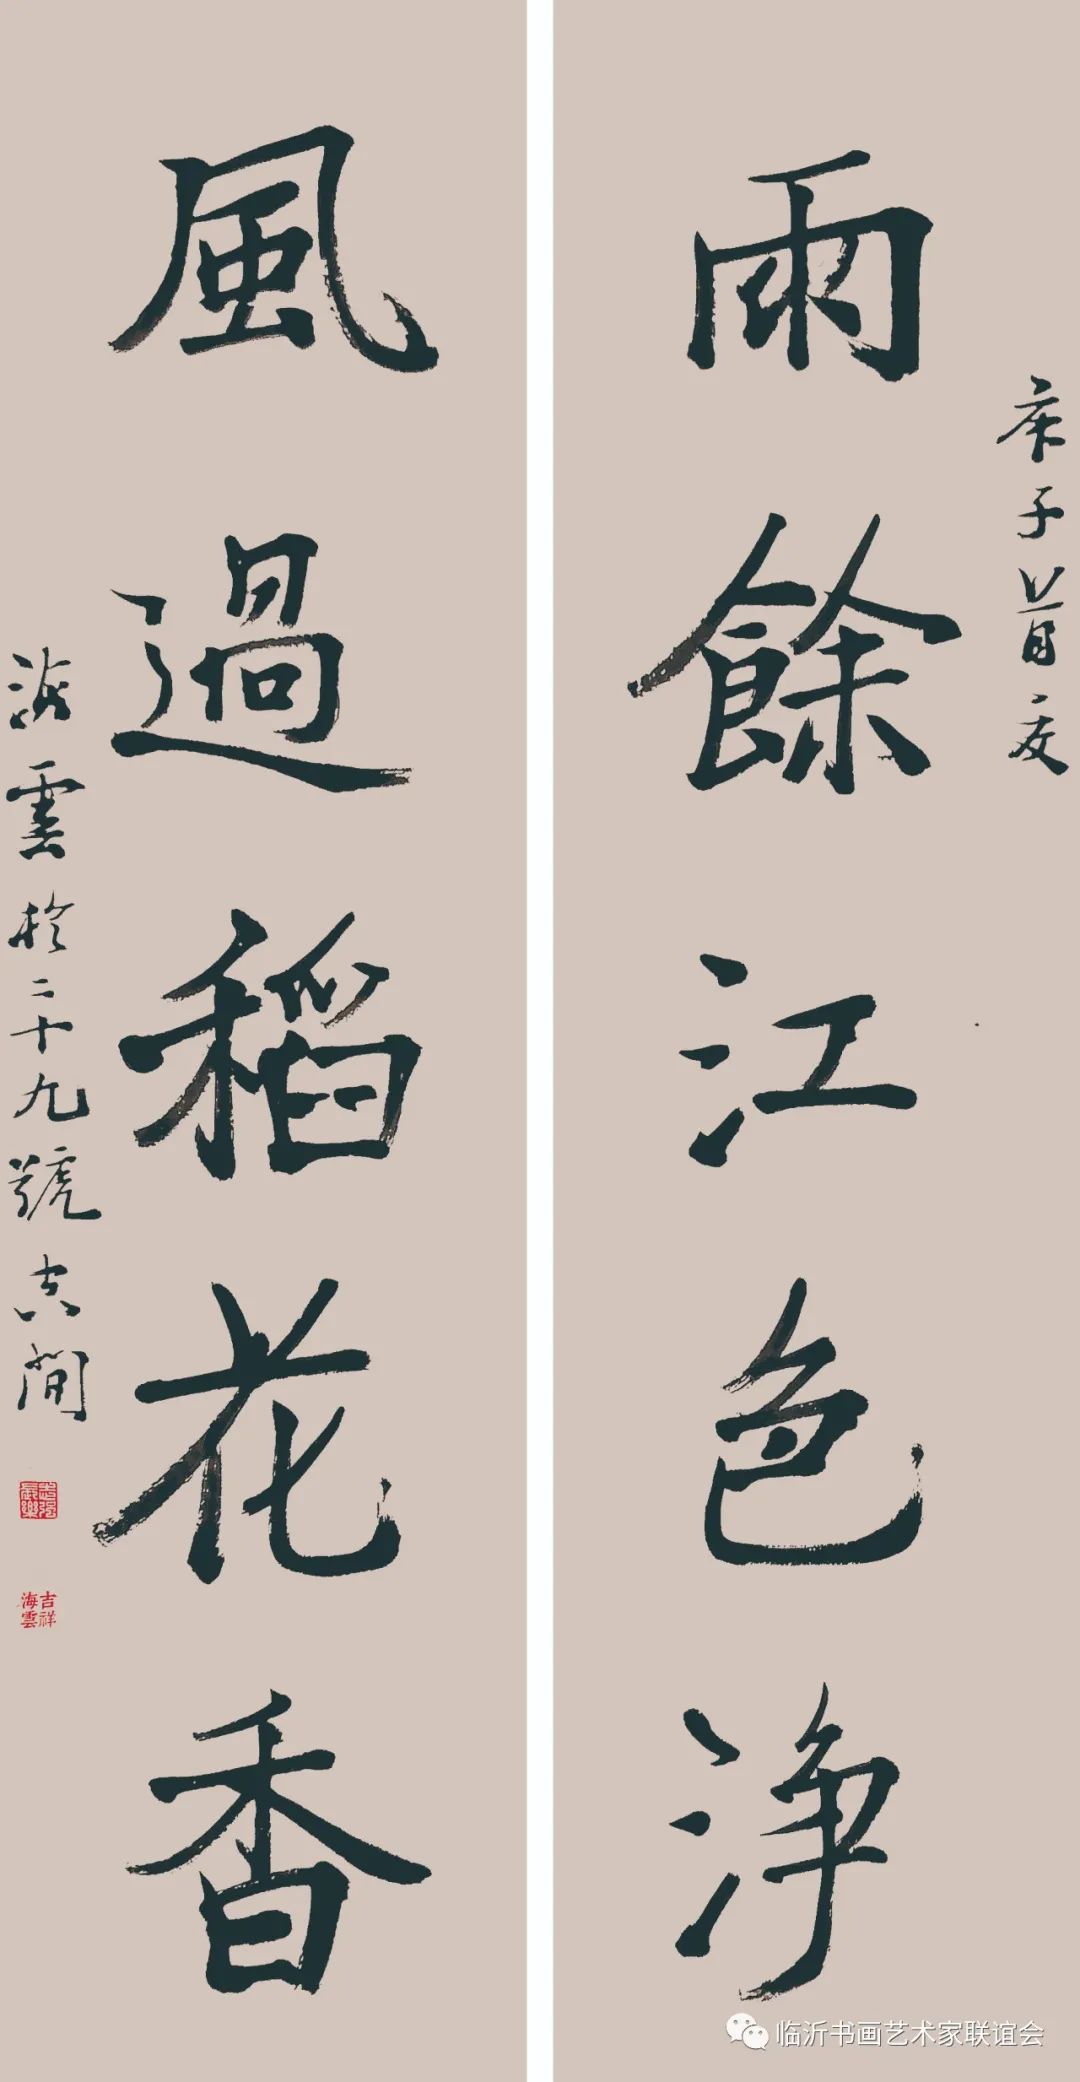 庚子首夏
雨餘江色淨
風過稻花香
海雲於二十九號
吉祥
海雲
临沂书画艺术家联谊会